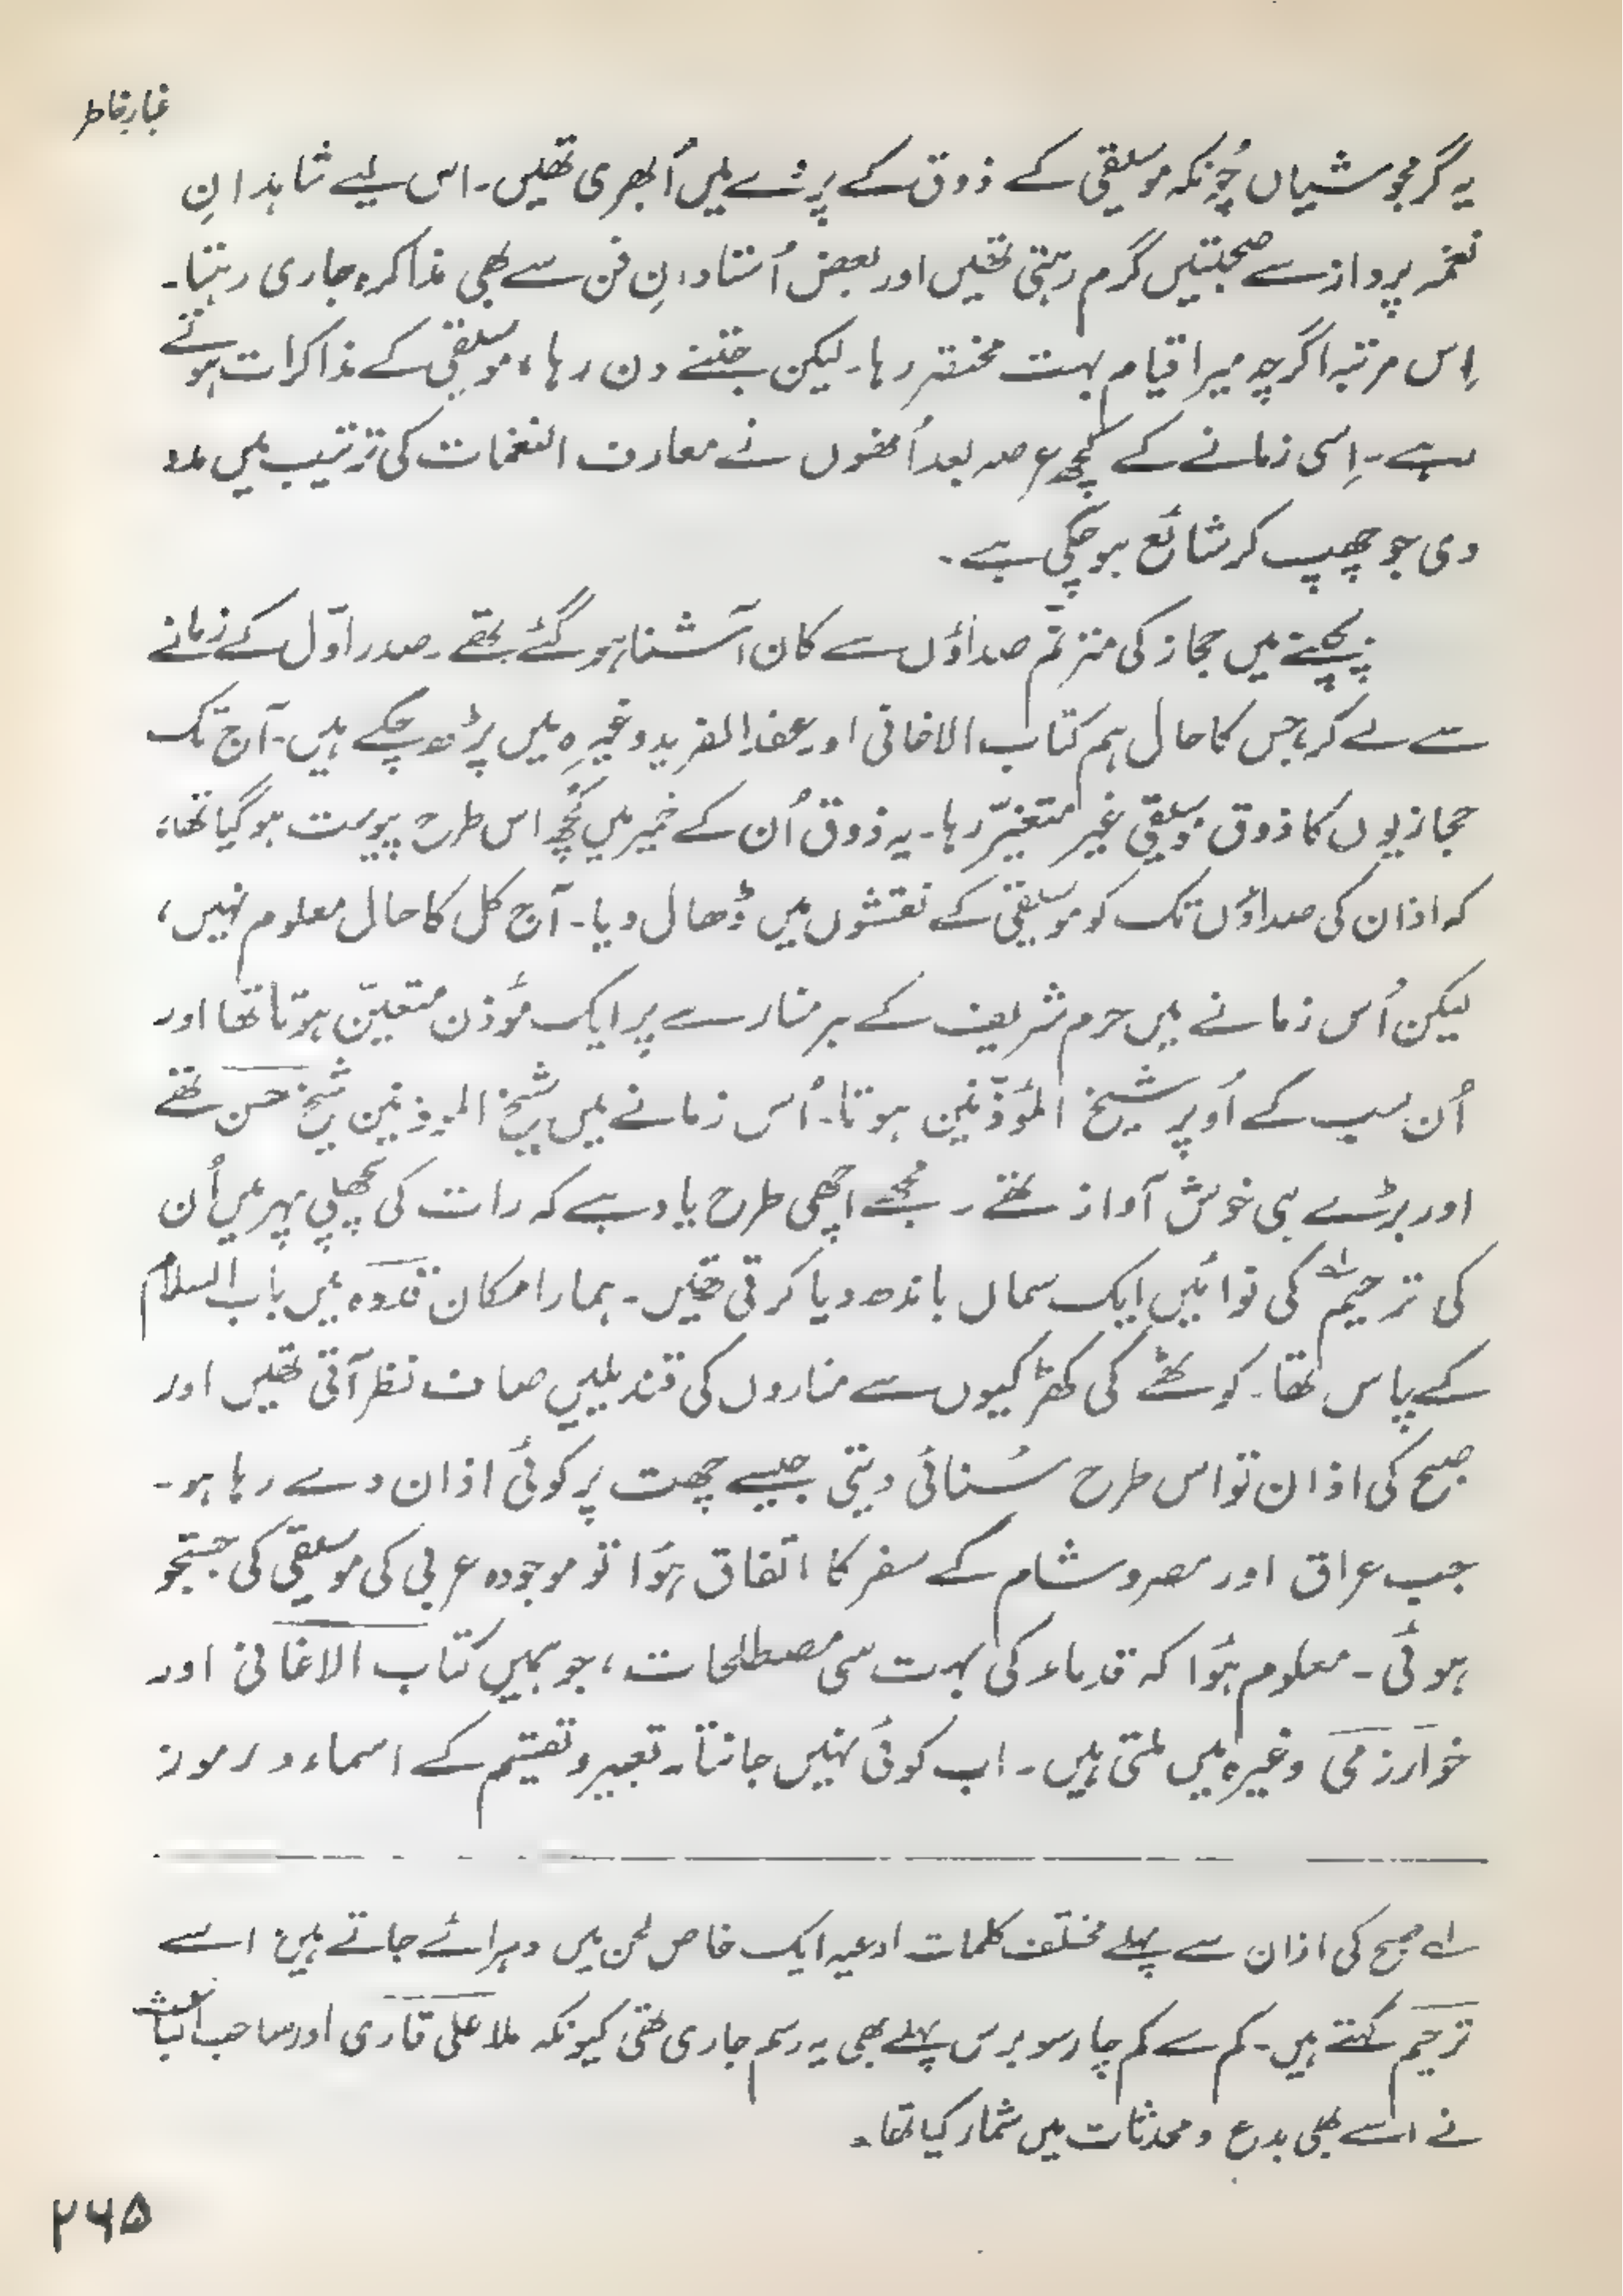 غبارِ خاطر
یہ گرمجوشیاں چُونکہ موسیقی کے ذوق کے پردے میں اُبھری تھیں۔ اس لیے شاہدانِ
نغمہ پرداز سے صحبتیں گرم رہتی تھیں اور بعض اُستادانِ فن سے بھی مذاکرہ جاری رہتا۔
اِس مرتبہ اگرچہ میرا قیام بہت مختصر رہا۔ لیکن جتنے دن رہا، موسیقی کے مذاکرات ہوتے
رہے۔ اِسی زمانے کے کچھ عرصہ بعد اُنھوں نے معارف النغمات کی ترتیب میں مدد
دی جو چھپ کر شائع ہو چکی ہے۔
بچپنے میں حجاز کی مترنّم صداؤں سے کان آشنا ہو گئے تھے۔ صدر اوّل کے زمانے
سے لے کر، جس کا حال ہم کتاب الاغانی اور عقد الفرید وغیرہ میں پڑھ چکے ہیں۔ آج تک
حجازیوں کا ذوق موسیقی غیر متغیّر رہا۔ یہ ذوق اُن کے خمیر میں کُچھ اس طرح پیوست ہو گیا تھا،
کہ اذان کی صداؤں تک کو موسیقی کے نقشوں میں ڈھال دیا۔ آج کل کا حال معلوم نہیں،
لیکن اُس زمانے میں حرم شریف کے ہر منارے پر ایک مؤذن متعیّن ہوتا تھا اور
اُن سب کے اُوپر شیخ المؤذّنین ہوتا۔ اُس زمانے میں شیخ الموذنین شیخ حسن تھے
اور بڑے ہی خوش آواز تھے۔ مجھے اچھی طرح یاد ہے کہ رات کی پچھلی پہر میں اُن
کی ترحیم لہ کی نوائیں ایک سماں باندھ دیا کرتی تھیں۔ ہمارا مکان قدوہ میں باب السلام
کے پاس تھا۔ کوٹھے کی کھڑکیوں سے مناروں کی قندیلیں صاف نظر آتی تھیں اور
صبح کی اذان تو اس طرح سُنائی دیتی جیسے چھت پر کوئی اذان دے رہا ہو۔
جب عراق اور مصر و شام کے سفر کا اتفاق ہُوا تو موجودہ عربی کی موسیقی کی جستجو
ہوئی۔ معلوم ہُوا کہ قدماء کی بہت سی مصطلحات، جو ہمیں کتاب الاغانی اور
خوارزمی وغیرہ میں ملتی ہیں۔ اب کوئی نہیں جانتا۔ تعبیر و تقسیم کے اسماء و رموز
لہ صبح کی اذان سے پہلے مختلف کلمات ادعیہ ایک خاص لحن میں دہرائے جاتے ہیں، اسے
ترحیم کہتے ہیں۔ کم سے کم چار سو برس پہلے بھی یہ رسم جاری تھی کیونکہ ملا علی قاری اور صاحب الباعث
نے اسے بھی بدع و محدثات میں شمار کیا تھا۔
۲۶۵